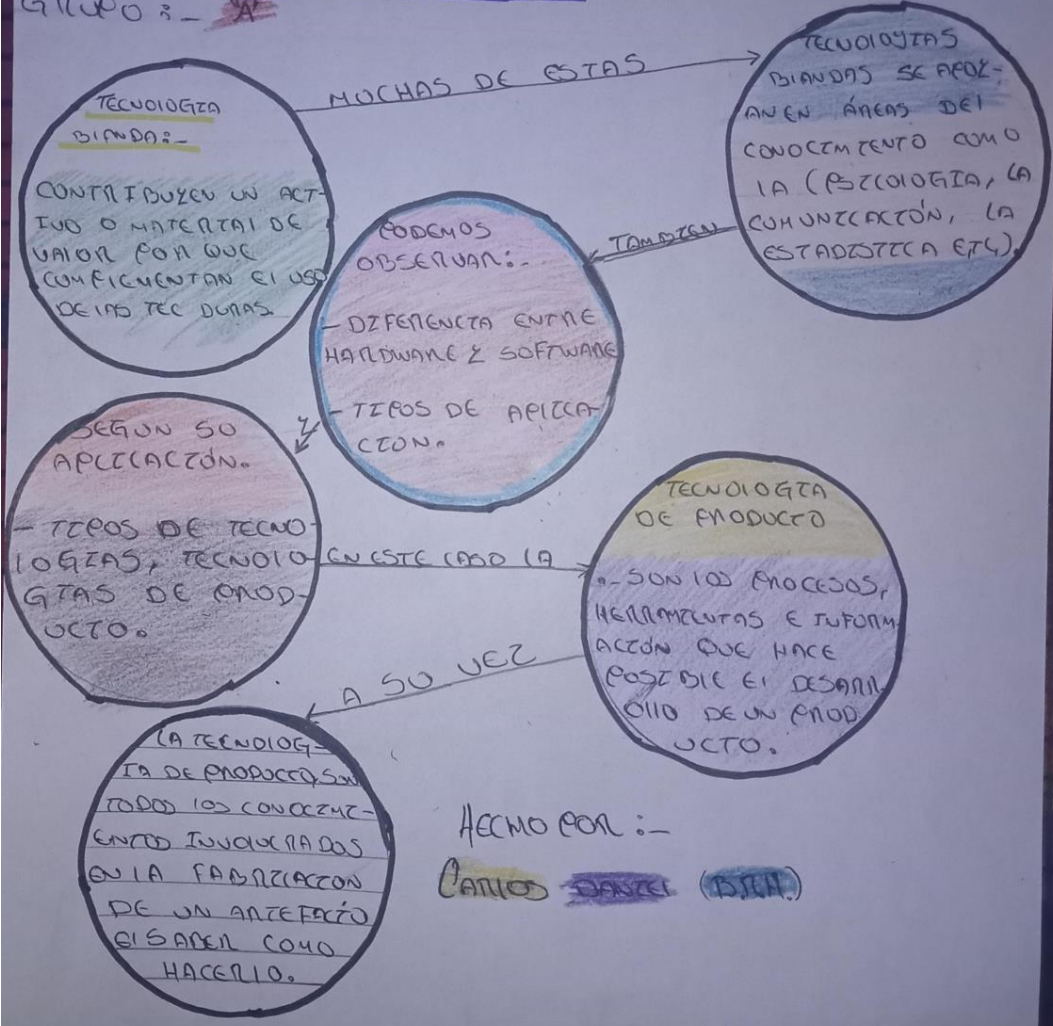 GRUPO :- "A"
TECNOLOGIA
BLANDA:-
CONTRIBUYEN UN ACT-
IVO O MATERIAL DE
VALOR POR QUE
COMPLEMENTAN El USO
DE lAS TEC DURAS.
MUCHAS DE ESTAS
TECNOlOGIAS
BlANDAS SE APOY-
AN EN ÁREAS DEl
CONOCIMIENTO COMO
lA (PSICOlOGIA, LA
COMUNICACIÓN, LA
ESTADISTICA ETC).
TAMBIEN
PODEMOS
OBSERVAR:-
- DIFERENCIA ENTRE
HARDWARE Y SOFTWARE
- TIPOS DE APLICA-
CION.
Y
SEGUN SU
APLICACIÓN.
- TIPOS DE TECNO-
lOGIAS, TECNOlO-
GIAS DE PROD-
UCTO.
EN ESTE CASO LA
TECNOlOGIA
DE PRODUCTO
.- SON lOS PROCESOS,
HERRAMIENTAS E INFORM-
ACIÓN QUE HACE
POSIBlE El DESARR-
OllO DE UN PROD-
UCTO.
A SU VEZ
LA TECNOlOG-
IA DE PRODUCTO, SON
TODOS lOS CONOCIMI-
ENTOS INVOLUCRADOS
EN lA FABRICACION
DE UN ARTEFACTO
El SABER COMO
HACERlO.
HECHO POR :-
CARlOS DANIEL (BRA.)